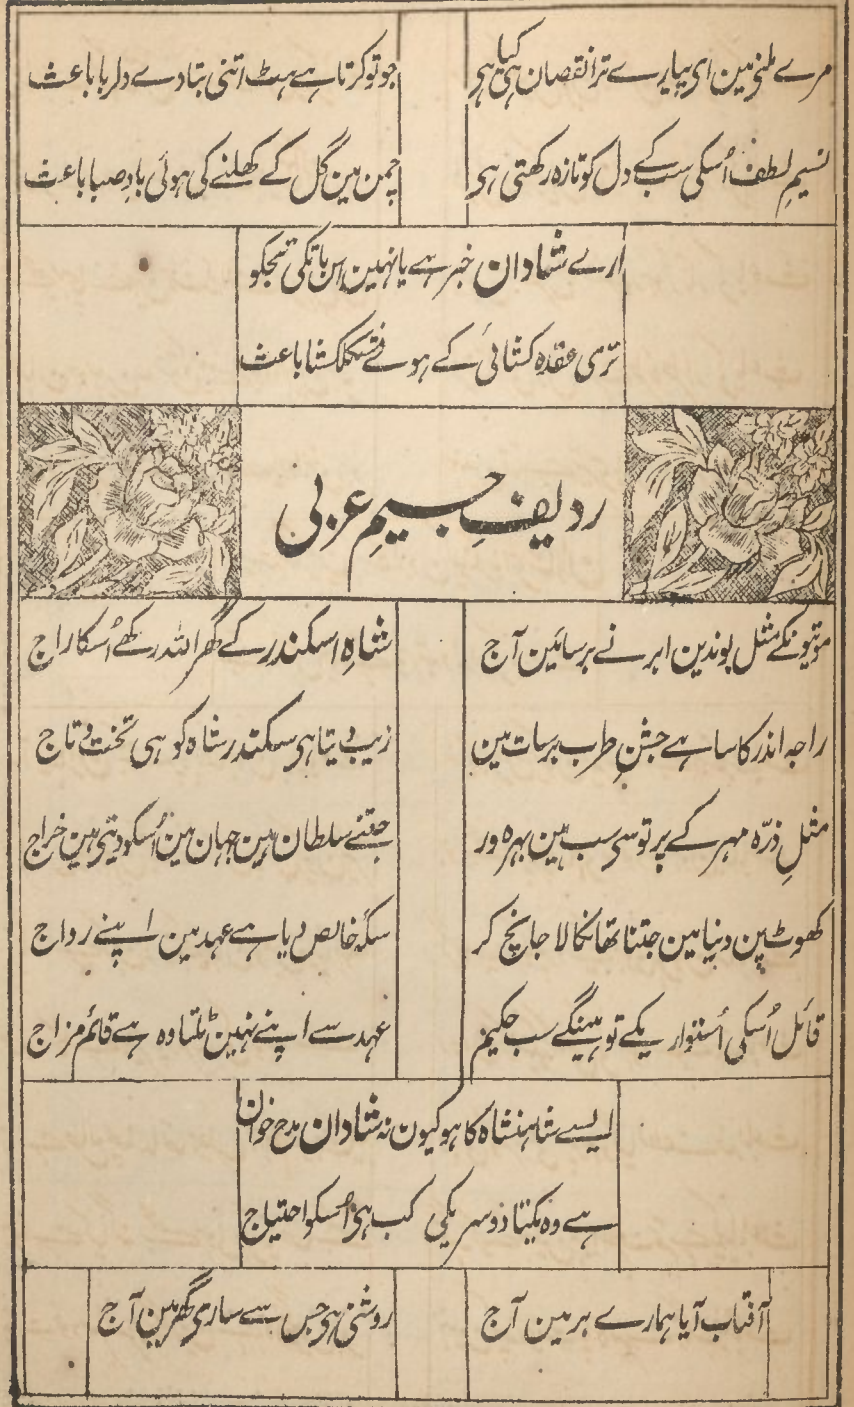 مرے ملنی مین ای پیارے ترا نقصان ہی کیا ہی
جو تو کرتا ہے ہٹ اتنی بتا دے دلربا باعث
نسیمِ لطف اُسکی سب کے دل کو تازہ رکھتی ہی
چمن مین گل کے کھلنے کی ہوئی بادِ صبا باعث
ارے شادان خبر ہے یا نہین اس باتکی تجکو
تری عقدہ کشائی کے ہوئے مشکلکشا باعث
ردیفِ جیمِ عربی
موتیونکے مثل پوندین ابر نے برسائین آج
شاہِ اسکندر کے گھر اللہ رکھے اُسکا راج
راجہ اندر کا سا ہے جشنِ طرب برسات مین
زیب دیتا ہی سکندر شاہ کو ہی تخت و تاج
مثلِ ذرّہ مہر کے پرتو سی سب ہین بہرہ ور
جتنے سلطان ہین جہان مین اُسکو دیتی ہین خراج
کھوٹ پن دنیا مین جتنا تھا نکالا جانچ کر
سکۂ خالص دیا ہے عہد مین اپنے رواج
قائل اُسکی اُستوار یکے تو ہینگے سب حکیم
عہد سے اپنے نہین ٹلتا وہ ہے قائم مزاج
ایسے شاہنشاہ کا ہو کیون نہ شادان مدح خوان
ہے وہ یکتا دوسریکی کب ہی اُسکو احتیاج
آفتاب آیا ہمارے بر مین آج
روشنی ہی جس سے ساری گھر مین آج